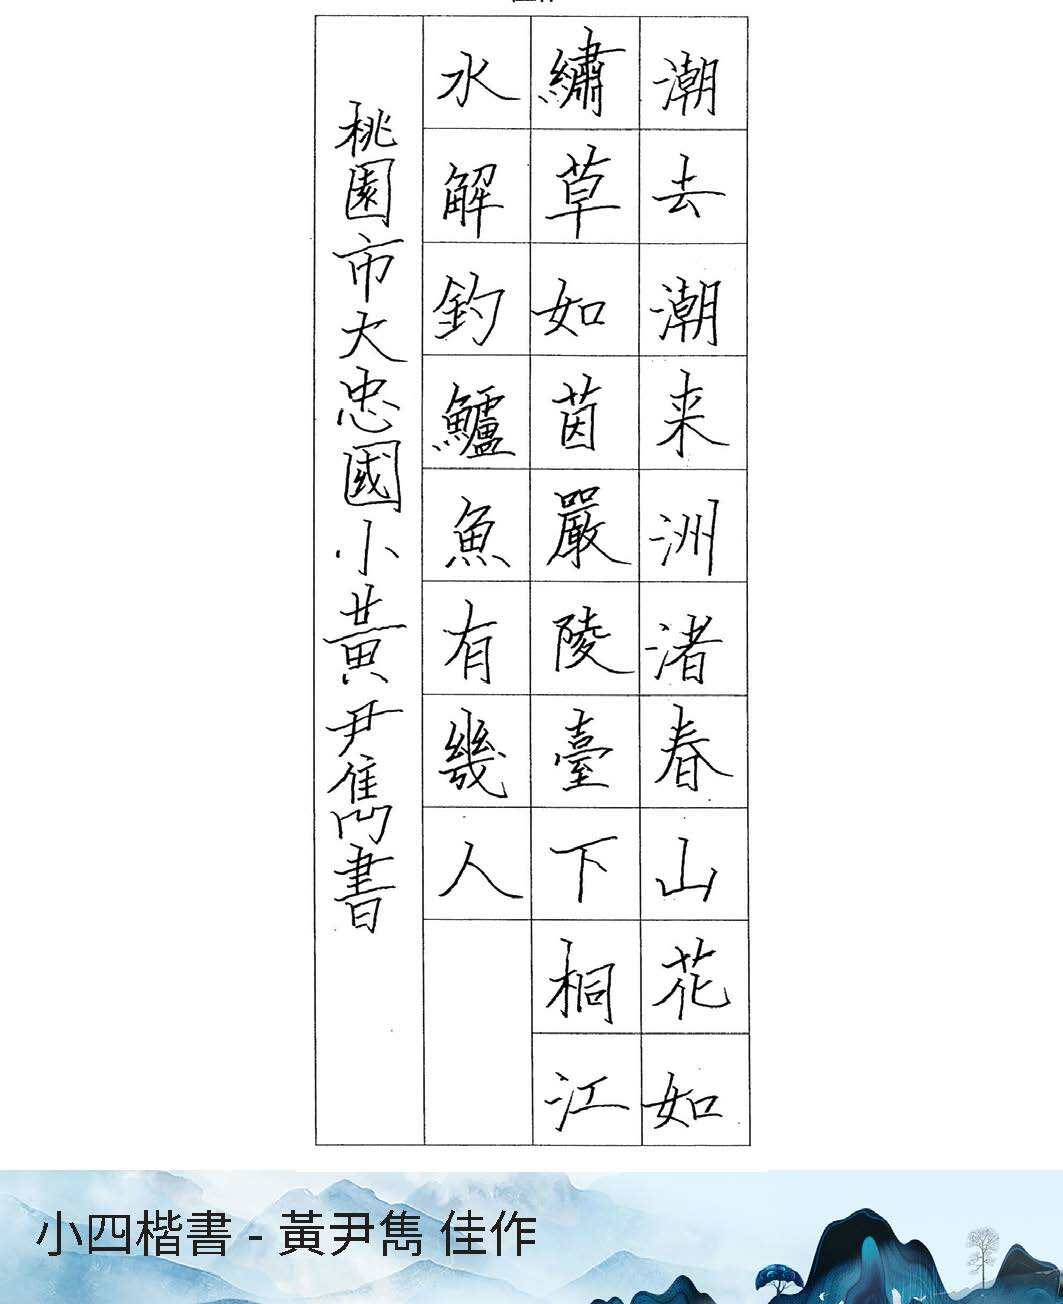 潮去潮来洲渚春山花如
繡草如茵嚴陵臺下桐江
水解釣鱸魚有幾人
桃園市大忠國小黃尹雋書
小四楷書 - 黃尹雋 佳作